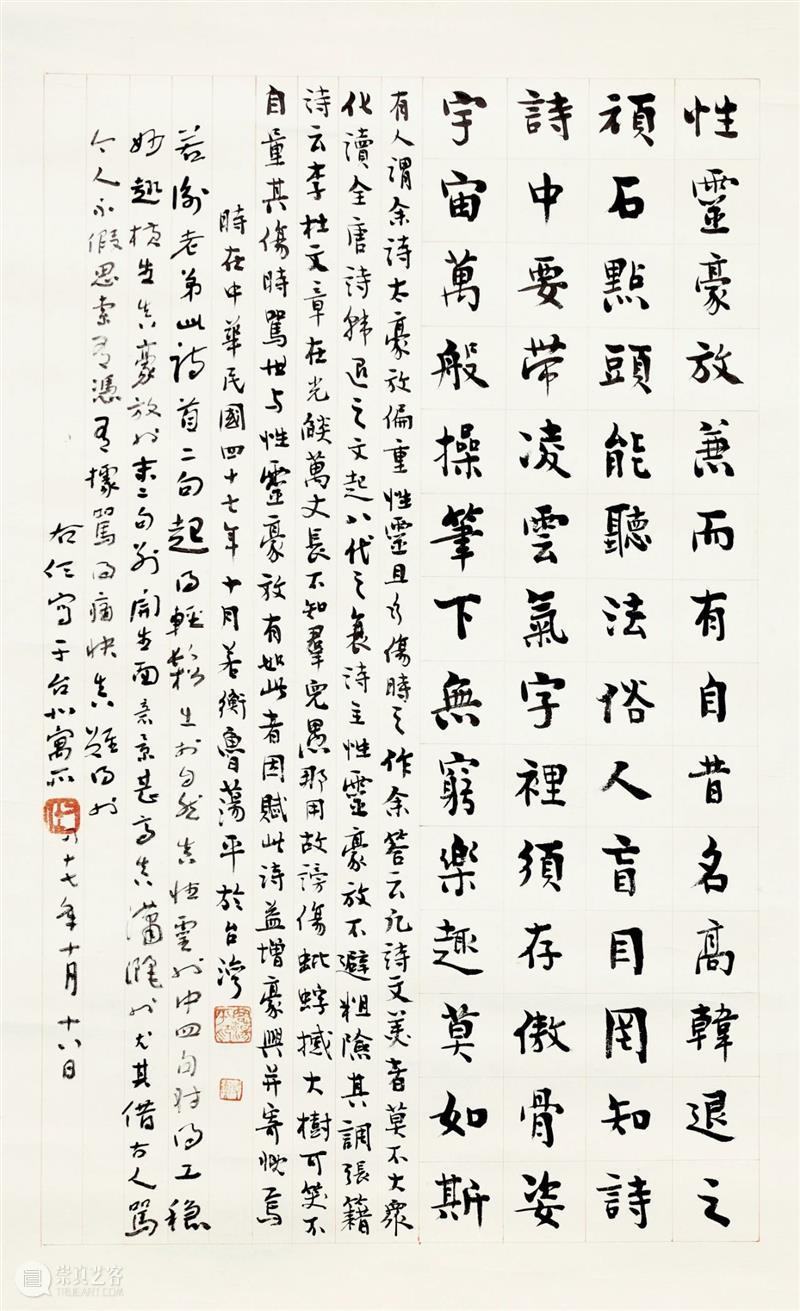 性靈豪放兼而有自昔名高韓退之
頑石點頭能聽法俗人盲目罔知詩
詩中要帶凌雲氣字裡須存傲骨姿
宇宙萬般操筆下無窮樂趣莫如斯
有人謂余詩太豪放偏重性靈且多傷時之作余答云凡詩文美者莫不大眾
化讀全唐詩韓退之文起八代之衰詩主性靈豪放不避粗險其調張籍
詩云李杜文章在光燄萬丈長不知羣兒愚那用故謗傷蚍蜉撼大樹可笑不
自量其傷時罵世与性靈豪放有如此者因賦此詩益增豪興并寄慨焉
時在中華民國四十七年十月若衡魯蕩平於台灣
若衡老弟此詩首二句起得輕鬆生於自然真性靈也中四句對得工穩
妙趣橫生真豪放也末二句別開生面意景甚高真瀟灑也尤其借古人罵
今人不假思索有憑有據罵得痛快真難得也
右任寫于台北寓所
四十七年十月十六日
崇真艺客
TRUEART.COM